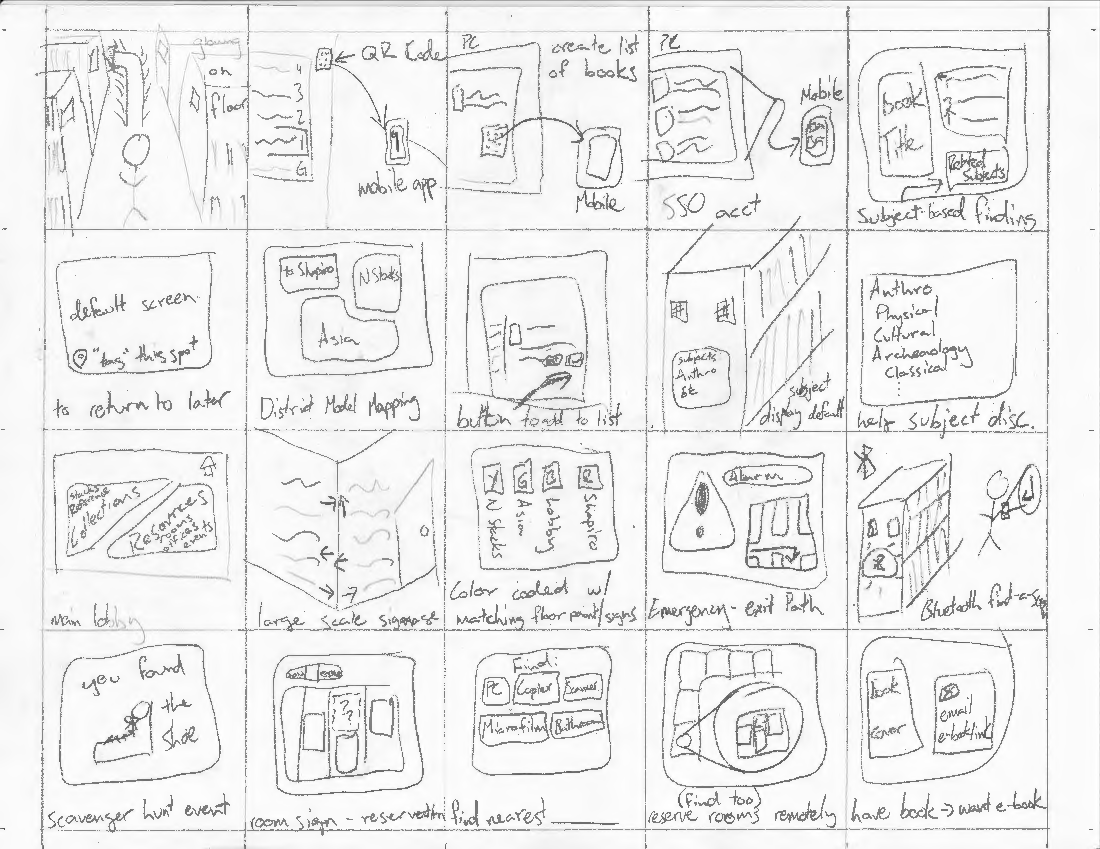 glowing
on
floor
QR Code
4
3
2
1
G
mobile app
PC
create list
of books
Mobile
PC
Mobile
SSO acct
Book
Title
Related
Subjects
Subject-based finding
default screen
"tag" this spot
to return to later
to Shapiro
N Stacks
Asia
District Model Mapping
button to add to list
subjects
Anthro
etc
subject
display default
Anthro
Physical
Cultural
Archeaology
Classical
help subject disc.
Stacks
Reference
Collections
Resources
rooms
offices
events
main lobby
large scale signage
N Stacks
Asia
Lobby
Shapiro
Color coded w/
matching floor paint/signs
Alarm
Emergency - exit Path
Bluetooth find-a-
you found
the
Shoe
Scavenger hunt event
room sign - reservation
Find:
PC
Copier
Scanner
Microfilm
Bathroom
find nearest ______
(find too)
reserve rooms remotely
book
cover
email
e-book link
have book → want e-book